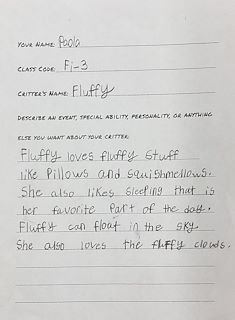 YOUR NAME: Paola
CLASS CODE: Fi-3
CRITTER'S NAME: Fluffy
DESCRIBE AN EVENT, SPECIAL ABILITY, PERSONALITY, OR ANYTHING
ELSE YOU WANT ABOUT YOUR CRITTER:
Fluffy loves fluffy stuff
like Pillows and squishmellows.
She also likes sleeping that is
her favorite Part of the day.
Fluffy can float in the sky.
She also loves the fluffy clouds.